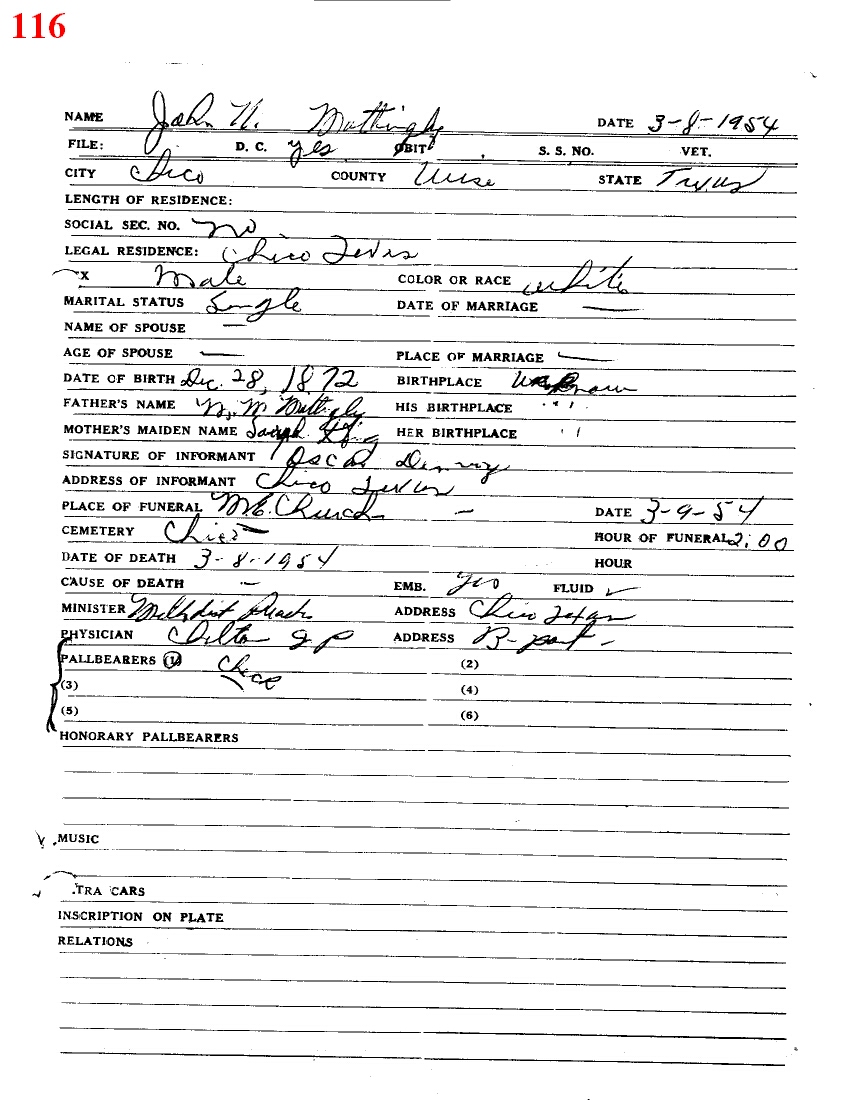 116
NAME John W. Mattingly DATE 3-8-1954
FILE: D. C. yes OBIT S. S. NO. VET.
CITY Chico COUNTY Wise STATE Texas
LENGTH OF RESIDENCE:
SOCIAL SEC. NO. no
LEGAL RESIDENCE: Chico Texas
X Male COLOR OR RACE white
MARITAL STATUS Single DATE OF MARRIAGE —
NAME OF SPOUSE —
AGE OF SPOUSE — PLACE OF MARRIAGE —
DATE OF BIRTH Dec. 28, 1872 BIRTHPLACE Unknown
FATHER'S NAME Mattingly HIS BIRTHPLACE " "
MOTHER'S MAIDEN NAME HER BIRTHPLACE " "
SIGNATURE OF INFORMANT Oscar
ADDRESS OF INFORMANT Chico Texas
PLACE OF FUNERAL M.E. Church — DATE 3-9-54
CEMETERY Chico HOUR OF FUNERAL 2:00
DATE OF DEATH 3-8-1954 HOUR
CAUSE OF DEATH — EMB. yes FLUID ✓
MINISTER Methodist ADDRESS Chico Texas
PHYSICIAN ADDRESS B-port —
PALLBEARERS (1) Chico (2)
(3) (4)
(5) (6)
HONORARY PALLBEARERS
MUSIC
TRA CARS
INSCRIPTION ON PLATE
RELATIONS